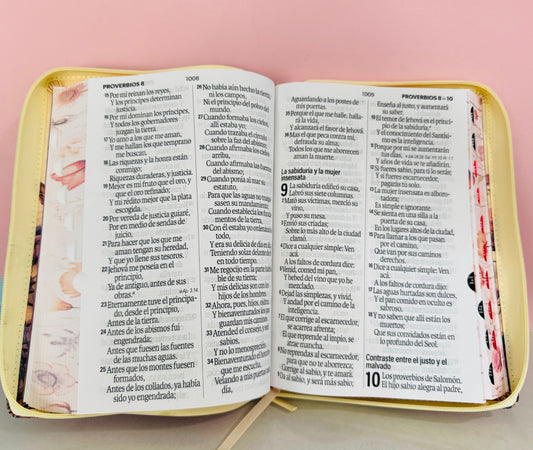 PROVERBIOS 8
1008
15 Por mí reinan los reyes,
Y los príncipes determinan
justicia.
16 Por mí dominan los príncipes,
Y todos los gobernadores
juzgan la tierra.
17 Yo amo a los que me aman,
Y me hallan los que temprano
me buscan.
18 Las riquezas y la honra están
conmigo;
Riquezas duraderas, y justicia.
19 Mejor es mi fruto que el oro, y
que el oro refinado;
Y mi rédito mejor que la plata
escogida.
20 Por vereda de justicia guiaré,
Por en medio de sendas de
juicio,
21 Para hacer que los que me
aman tengan su heredad,
Y que yo llene sus tesoros.
22 Jehová me poseía en el
principio,
Ya de antiguo, antes de sus
obras.
23 Eternamente tuve el principa-
do, desde el principio,
Antes de la tierra.
24 Antes de los abismos fui
engendrada;
Antes que fuesen las fuentes
de las muchas aguas.
25 Antes que los montes fuesen
formados,
Antes de los collados, ya había
sido yo engendrada;
26 No había aún hecho la tierra,
ni los campos,
Ni el principio del polvo del
mundo.
27 Cuando formaba los cielos,
allí estaba yo;
Cuando trazaba el círculo
sobre la faz del abismo;
28 Cuando afirmaba los cielos
arriba,
Cuando afirmaba las fuentes
del abismo;
29 Cuando ponía al mar su
estatuto,
Para que las aguas no traspa-
sasen su mandamiento;
Cuando establecía los funda-
mentos de la tierra,
30 Con él estaba yo ordenándolo
todo,
Y era su delicia de día en día,
Teniendo solaz delante de él
en todo tiempo.
31 Me regocijo en la parte habita-
ble de su tierra;
Y mis delicias son con los
hijos de los hombres.
32 Ahora, pues, hijos, oídme,
Y bienaventurados los que
guardan mis caminos.
33 Atended el consejo, y sed
sabios,
Y no lo menospreciéis.
34 Bienaventurado el hombre
que me escucha,
Velando a mis puertas
1009
PROVERBIOS 8 — 10
Aguardando a los postes de
mis puertas.
35 Porque el que me halle, halla-
rá la vida,
Y alcanzará el favor de Jehová.
36 Mas el que peca contra mí,
defrauda su alma;
Todos los que me aborrecen
aman la muerte.
La sabiduría y la mujer
insensata
9 La sabiduría edificó su casa,
Labró sus siete columnas.
2 Mató sus víctimas, mezcló su
vino,
Y puso su mesa.
3 Envió sus criadas;
Sobre lo más alto de la ciudad
clamó.
4 Dice a cualquier simple: Ven
acá.
A los faltos de cordura dice:
5 Venid, comed mi pan,
Y bebed del vino que yo he
mezclado.
6 Dejad las simplezas, y vivid,
Y andad por el camino de la
inteligencia.
7 El que corrige al escarnecedor,
se acarrea afrenta;
El que reprende al impío, se
atrae mancha.
8 No reprendas al escarnecedor,
para que no te aborrezca;
Corrige al sabio, y te amará.
9 Da al sabio, y será más sabio;
Enseña al justo, y aumentará
su saber.
10 El temor de Jehová es el princi-
pio de la sabiduría,
Y el conocimiento del Santísi-
mo es la inteligencia.
11 Porque por mí se aumentarán
tus días,
Y años de vida se te añadirán.
12 Si fueres sabio, para ti lo serás;
Y si fueres escarnecedor,
pagarás tú solo.
13 La mujer insensata es alboro-
tadora;
Es simple e ignorante.
14 Se sienta en una silla a la
puerta de su casa,
En los lugares altos de la ciudad,
15 Para llamar a los que pasan
por el camino,
Que van por sus caminos
derechos.
16 Dice a cualquier simple: Ven
acá.
A los faltos de cordura dijo:
17 Las aguas hurtadas son dulces,
Y el pan comido en oculto es
sabroso.
18 Y no saben que allí están los
muertos;
Que sus convidados están en
lo profundo del Seol.
Contraste entre el justo y el
malvado
10 Los proverbios de Salomón.
El hijo sabio alegra al padre,